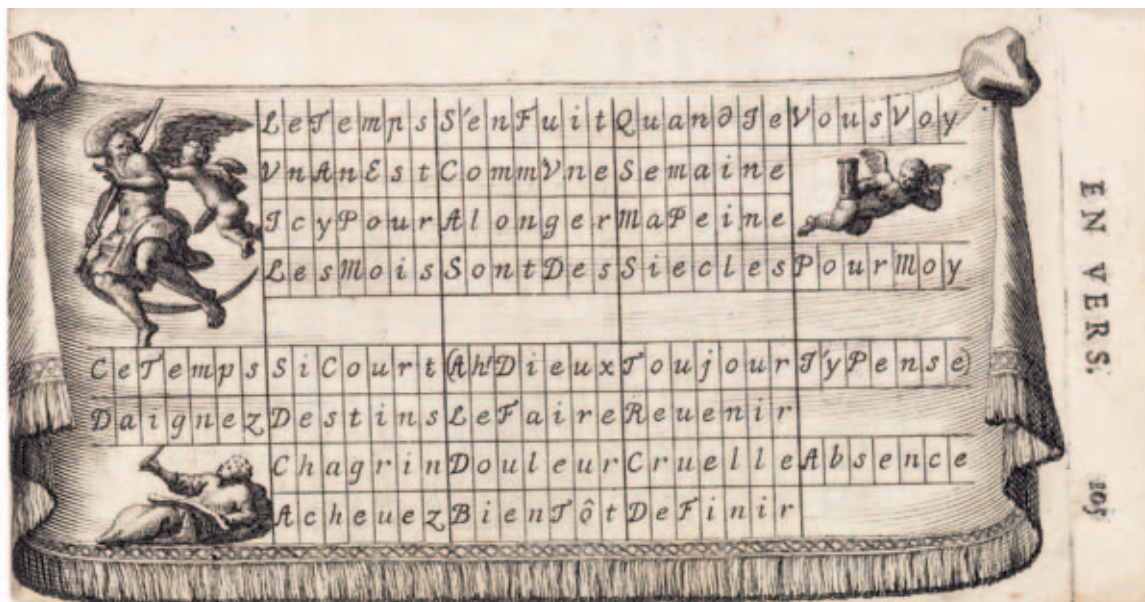 LeTempsS'enFuitQuandJeVousVoy
VnAnEstCommVneSemaine
JcyPourAlongerMaPeine
LesMoisSontDesSieclesPourMoy
CeTempsSiCourt(Ah!DieuxToujourJ'yPense)
DaignezDestinsLeFaireReuenir
ChagrinDouleurCruelleAbsence
AcheuezBienTôtDeFinir
EN VERS.
105